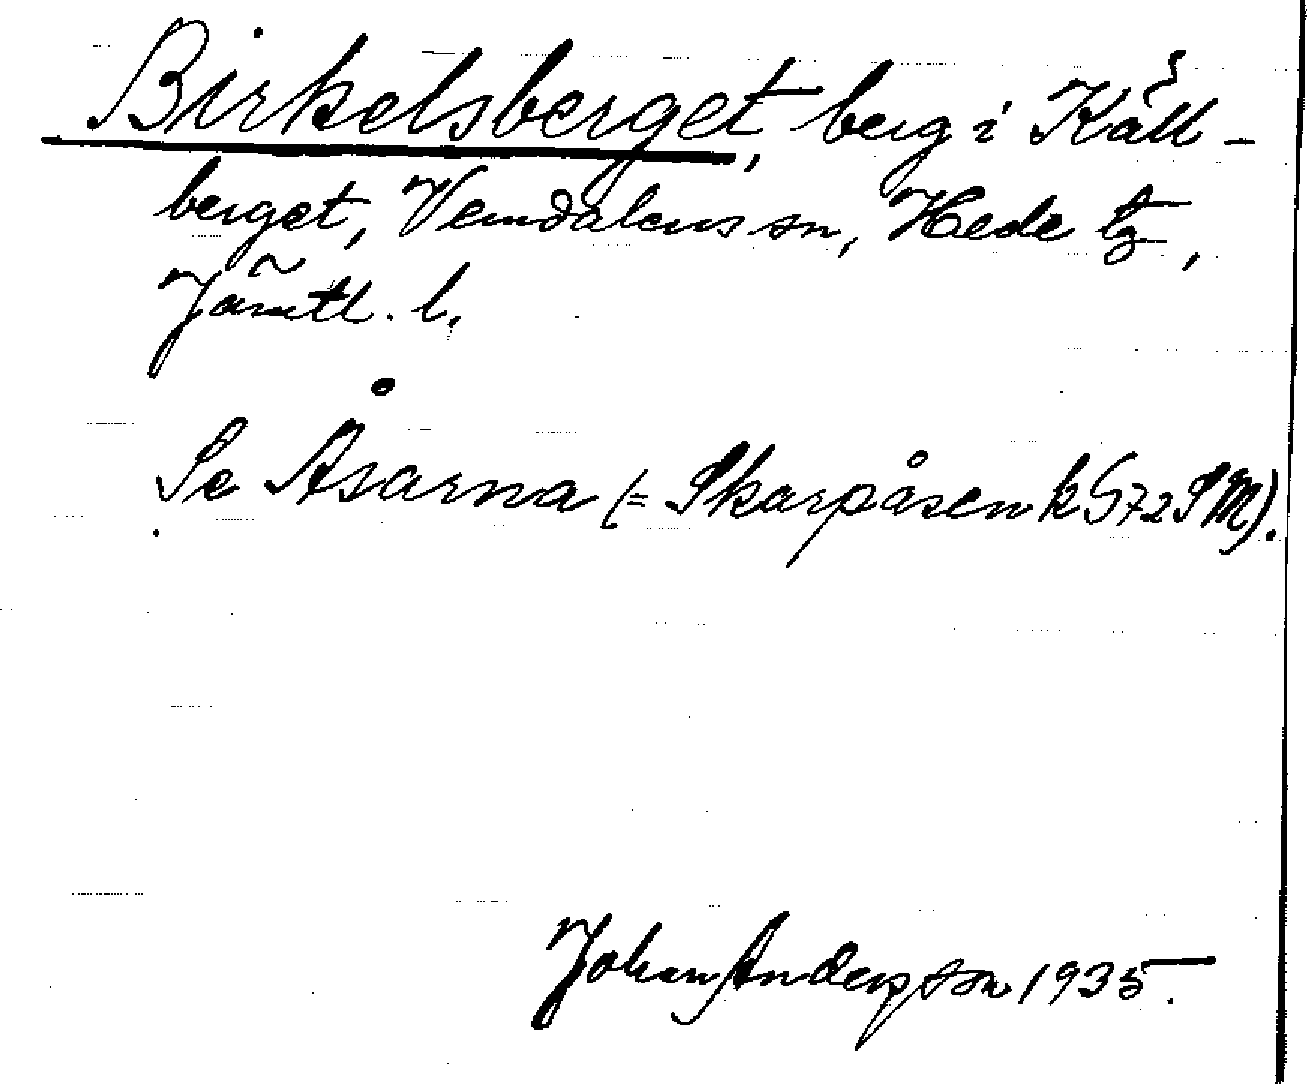 Birkelsberget, berg i Käll-
berget, Vemdalens sn, Hede tg,
Jämtl. l.
Se Åsarna (= Skarpåsen k G72SM).
Johan Andersson 1935.